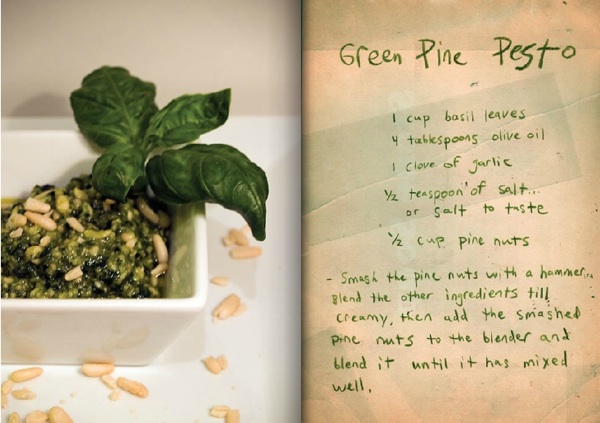 Green Pine Pesto
1 cup basil leaves
4 tablespoons olive oil
1 clove of garlic
½ teaspoon of salt...
or salt to taste
½ cup pine nuts
- Smash the pine nuts with a hammer...
Blend the other ingredients till
creamy, then add the smashed
pine nuts to the blender and
blend it until it has mixed
well.